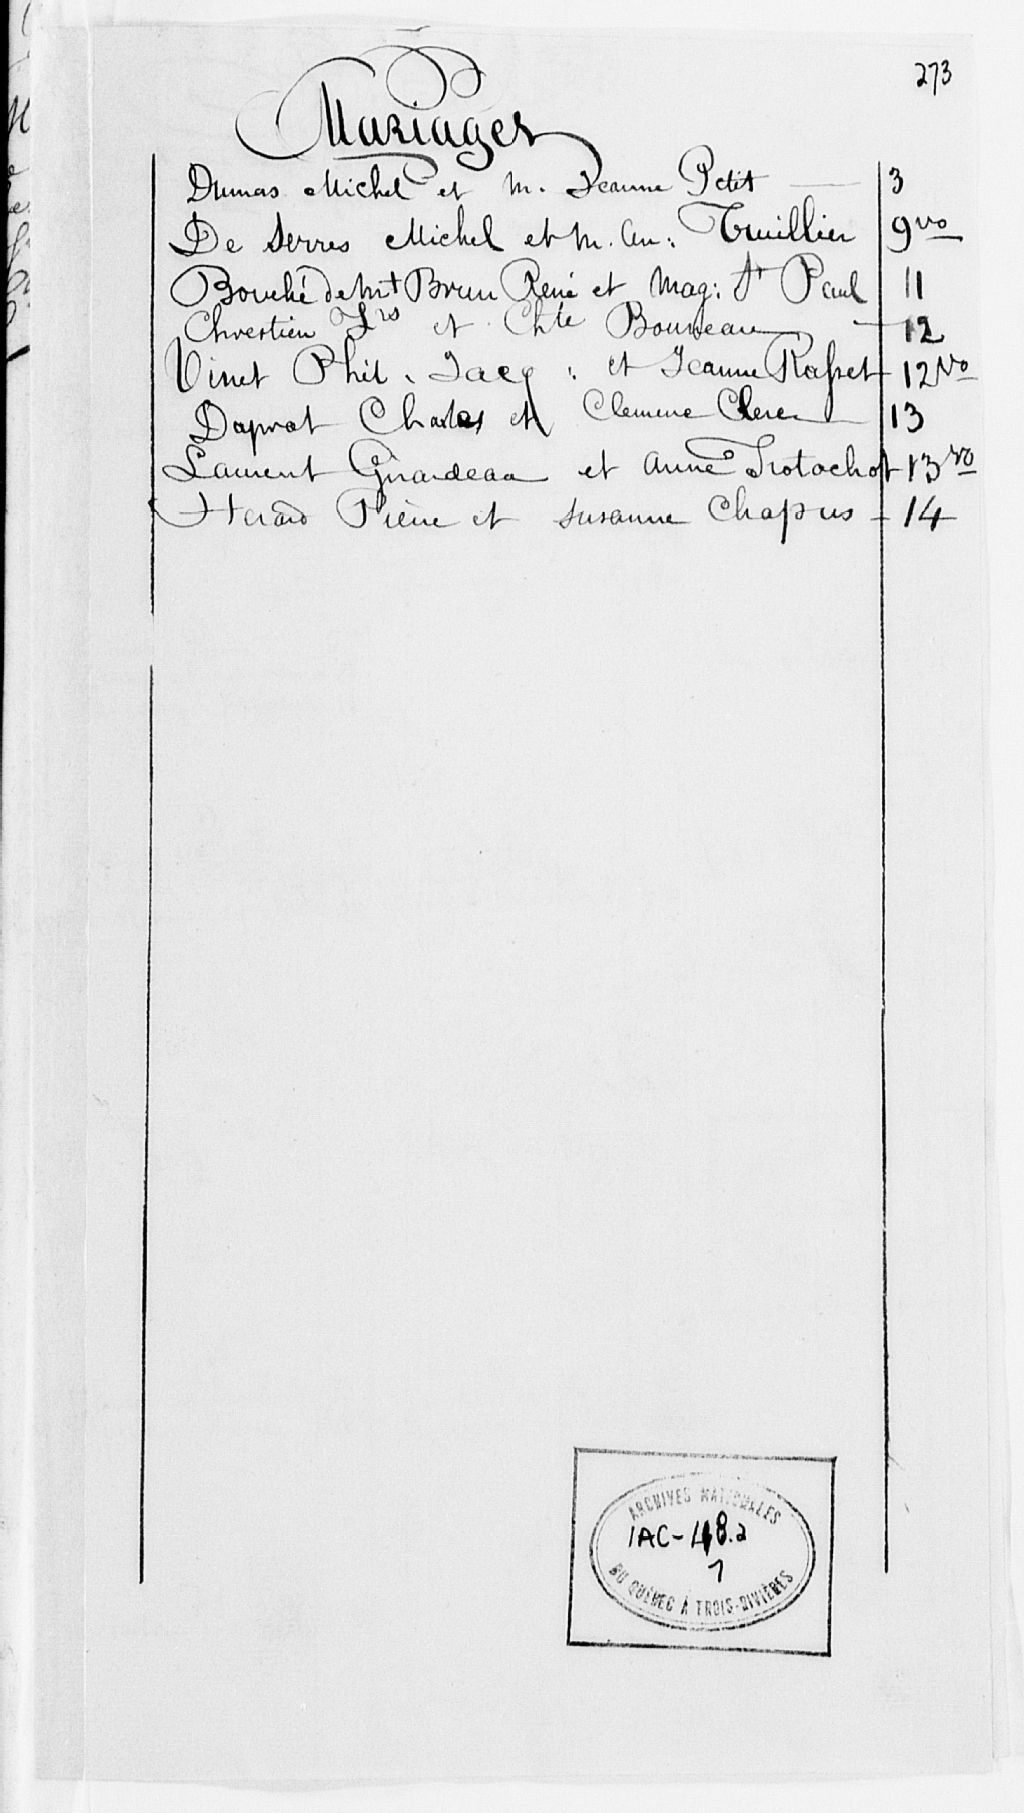 273
Mariages
Dumas Michel et M. Jeanne Petit — 3
De Serres Michel et M. An: Truillier 9 vo
Bouché de Mt Brun René et Mag: St Paul 11
Chrestien Frs et Chte Bouneau — 12
Vinet Phil. Jacq: et Jeanne Rasset 12 Vo
Daprat Charles et Clemence Clerc 13
Laurent Girardeau et Anne Trotochot 13 vo
Herard Pierre et Susanne Chapus 14
ARCHIVES NATIONALES
1AC-48.2
7
DU QUÉBEC À TROIS-RIVIÈRES